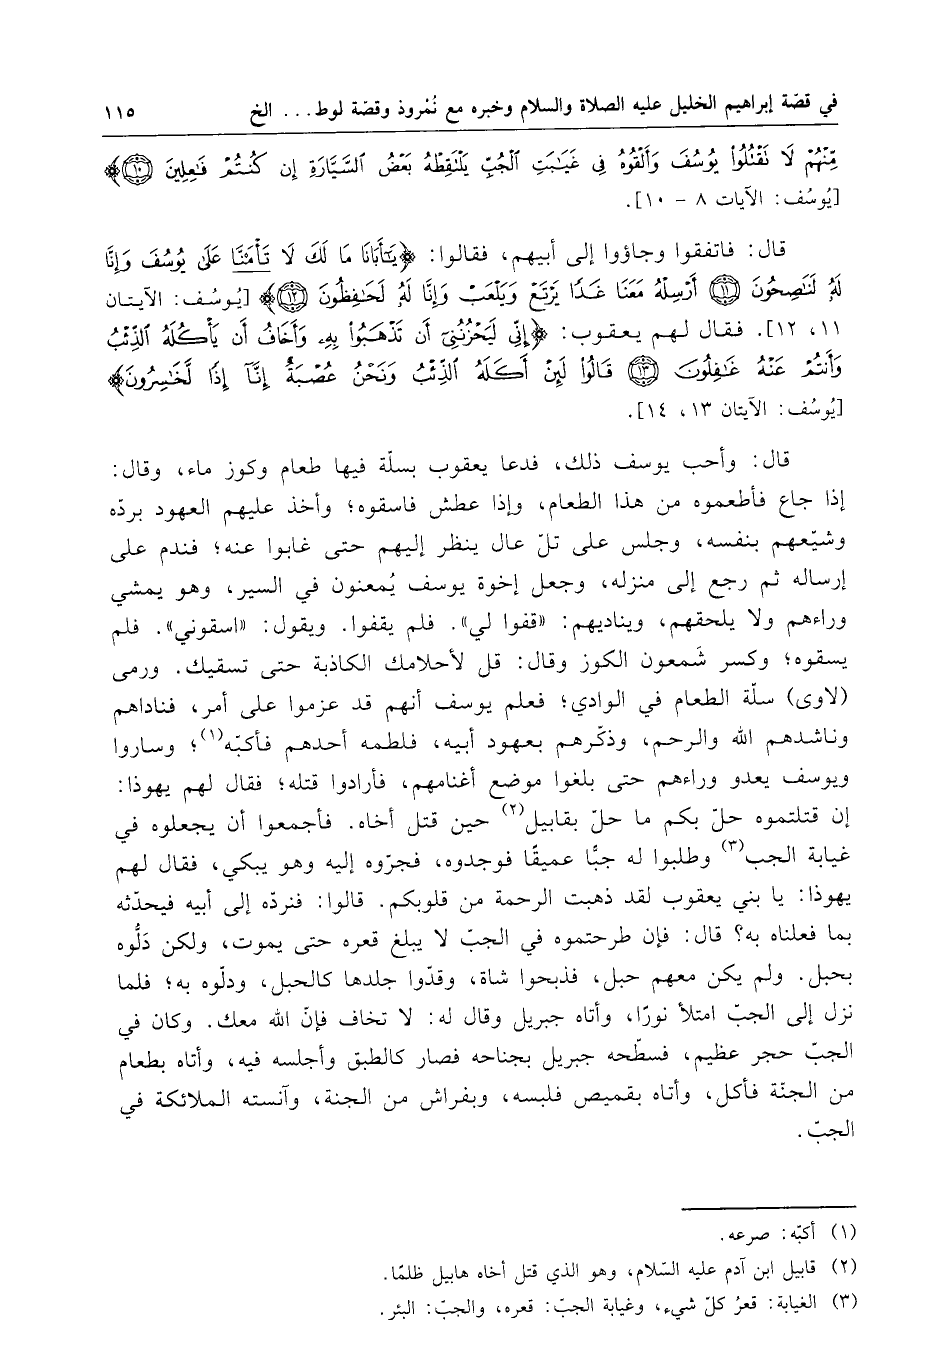 في قصّة إبراهيم الخليل عليه الصلاة والسلام وخبره مع نُمْروذ وقصّة لوط... الخ ١١٥
مِّنْهُمْ لَا نَقْتُلُوا۟ يُوسُفَ وَأَلْقُوهُ فِى غَيَـٰبَتِ ٱلْجُبِّ يَلْتَقِطْهُ بَعْضُ ٱلسَّيَّارَةِ إِن كُنتُمْ فَـٰعِلِينَ ﴿١٠﴾﴾
[يُوسُف: الآيات ٨ - ١٠].
قال: فاتفقوا وجاؤوا إلى أبيهم، فقالوا: ﴿يَـٰٓأَبَانَا مَا لَكَ لَا تَأْمَنَّا عَلَىٰ يُوسُفَ وَإِنَّا
لَهُۥ لَنَـٰصِحُونَ ﴿١١﴾ أَرْسِلْهُ مَعَنَا غَدًا يَرْتَعْ وَيَلْعَبْ وَإِنَّا لَهُۥ لَحَـٰفِظُونَ ﴿١٢﴾﴾ [يُوسُف: الآيتان
١١، ١٢]. فقال لهم يعقوب: ﴿إِنِّى لَيَحْزُنُنِىٓ أَن تَذْهَبُوا۟ بِهِۦ وَأَخَافُ أَن يَأْكُلَهُ ٱلذِّئْبُ
وَأَنتُمْ عَنْهُ غَـٰفِلُونَ ﴿١٣﴾ قَالُوا۟ لَئِنْ أَكَلَهُ ٱلذِّئْبُ وَنَحْنُ عُصْبَةٌ إِنَّآ إِذًا لَّخَـٰسِرُونَ﴾
[يُوسُف: الآيتان ١٣، ١٤].
قال: وأحب يوسف ذلك، فدعا يعقوب بسلّة فيها طعام وكوز ماء، وقال:
إذا جاع فأطعموه من هذا الطعام، وإذا عطش فاسقوه؛ وأخذ عليهم العهود بردّه
وشيّعهم بنفسه، وجلس على تلّ عال ينظر إليهم حتى غابوا عنه؛ فندم على
إرساله ثم رجع إلى منزله، وجعل إخوة يوسف يُمعنون في السير، وهو يمشي
وراءهم ولا يلحقهم، ويناديهم: «قفوا لي». فلم يقفوا. ويقول: «اسقوني». فلم
يسقوه؛ وكسر شَمعون الكوز وقال: قل لأحلامك الكاذبة حتى تسقيك. ورمى
(لاوى) سلّة الطعام في الوادي؛ فعلم يوسف أنهم قد عزموا على أمر، فناداهم
وناشدهم الله والرحم، وذكّرهم بعهود أبيه، فلطمه أحدهم فأكبّه(١)؛ وساروا
ويوسف يعدو وراءهم حتى بلغوا موضع أغنامهم، فأرادوا قتله؛ فقال لهم يهوذا:
إن قتلتموه حلّ بكم ما حلّ بقابيل(٢) حين قتل أخاه. فأجمعوا أن يجعلوه في
غيابة الجب(٣) وطلبوا له جبًّا عميقًا فوجدوه، فجرّوه إليه وهو يبكي، فقال لهم
يهوذا: يا بني يعقوب لقد ذهبت الرحمة من قلوبكم. قالوا: فنردّه إلى أبيه فيحدّثه
بما فعلناه به؟ قال: فإن طرحتموه في الجبّ لا يبلغ قعره حتى يموت، ولكن دَلُّوه
بحبل. ولم يكن معهم حبل، فذبحوا شاة، وقدّوا جلدها كالحبل، ودلّوه به؛ فلما
نزل إلى الجبّ امتلأ نورًا، وأتاه جبريل وقال له: لا تخاف فإنّ الله معك. وكان في
الجبّ حجر عظيم، فسطّحه جبريل بجناحه فصار كالطبق وأجلسه فيه، وأتاه بطعام
من الجنّة فأكل، وأتاه بقميص فلبسه، وبفراش من الجنة، وآنسته الملائكة في
الجبّ.
(١) أكبّه: صرعه.
(٢) قابيل ابن آدم عليه السّلام، وهو الذي قتل أخاه هابيل ظلمًا.
(٣) الغيابة: قعرُ كلّ شيء، وغيابة الجبّ: قعره، والجبّ: البئر.